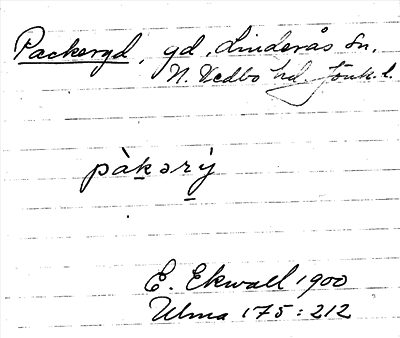 Packeryd, gd, Linderås sn,
N. Vedbo hd. Jönk. l.
pàkərý
E. Ekwall 1900
Ulma 175:212